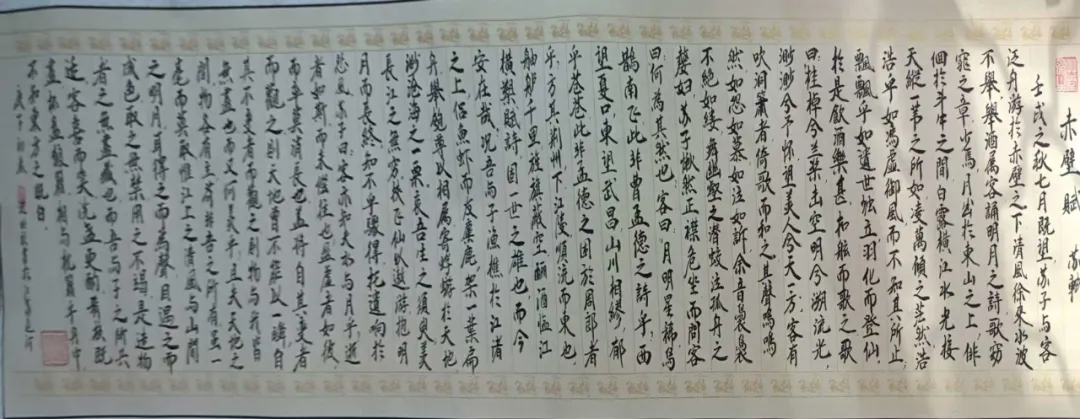 赤壁賦 苏轼
壬戌之秋七月既望苏子与客
泛舟游於赤壁之下清風徐来水波
不舉舉酒属客誦明月之詩歌窈
窕之章少焉月出於東山之上徘
徊於斗牛之間白露橫江水光接
天縱一苇之所如凌萬頃之茫然浩
浩乎如馮虚御風而不知其所止
飄飄乎如遺世独立羽化而登仙
於是飲酒樂甚扣舷而歌之歌
曰桂棹兮兰桨击空明兮溯流光
渺渺兮予怀望美人兮天一方客有
吹洞簫者倚歌而和之其聲嗚嗚
然如怨如慕如泣如訴余音裊裊
不絕如縷舞幽壑之潜蛟泣孤舟之
嫠妇苏子愀然正襟危坐而問客
曰何為其然也客曰月明星稀烏
鵲南飞此非曹孟德之詩乎西
望夏口東望武昌山川相繆郁
乎苍苍此非孟德之困於周郎者
乎方其荆州下江陵順流而東也
舳舻千里旌旗蔽空酾酒临江
横槊賦詩固一世之雄也而今
安在哉况吾与子渔樵於江渚
之上侣魚虾而友麋鹿架一葉扁
舟舉匏樽以相属寄蜉蝣於天地
渺沧海之一粟哀吾生之须臾羡
長江之無穷挾飞仙以遨游抱明
月而長終知不乎驟得托遺响於
悲風苏子曰客亦知夫水与月乎逝
者如斯而未尝往也盈虚者如彼
而卒莫消長也盖将自其变者
而觀之則天地曾不能以一瞬自
其不变者而觀之則物与我皆
無盡也而又何羡乎且夫天地之
間物各有主苟非吾之所有虽一
毫而莫取惟江上之清風与山間
之明月耳得之而為聲目遇之而
成色取之無禁用之不竭是造物
者之無盡藏也而吾与子之所共
适客喜而笑洗盏更酌肴核既
盡杯盘狼藉相与枕藉乎舟中
不知東方之既白